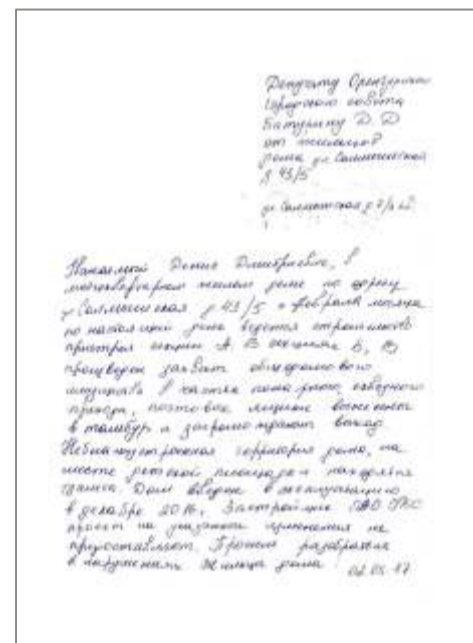 Депутату Оренбургского
городского совета
Батурину Д. Д
от жильцов
дома ул Салмышской
д 43/5
ул Салмышская д 7/
Уважаемый Денис Дмитриевич, в
многоквартирном жилом доме по адресу
ул Салмышская д 43/5 с февраля месяца
по настоящий время ведется строительство
пристроя секции А. В секциях Б, В
произведен захват общедомового
имущества в частях пожарного, входного
прохода, почтовые ящики выносят
в тамбур и загромождают выход
Неблагоустроенная территория дома, на
месте детской площадки находятся
Дом введен в эксплуатацию
в декабре 2016. Застройщик
проект на указанные изменения не
предоставляют. Просим разобраться
в нарушениях Жильцы дома
02.05.17